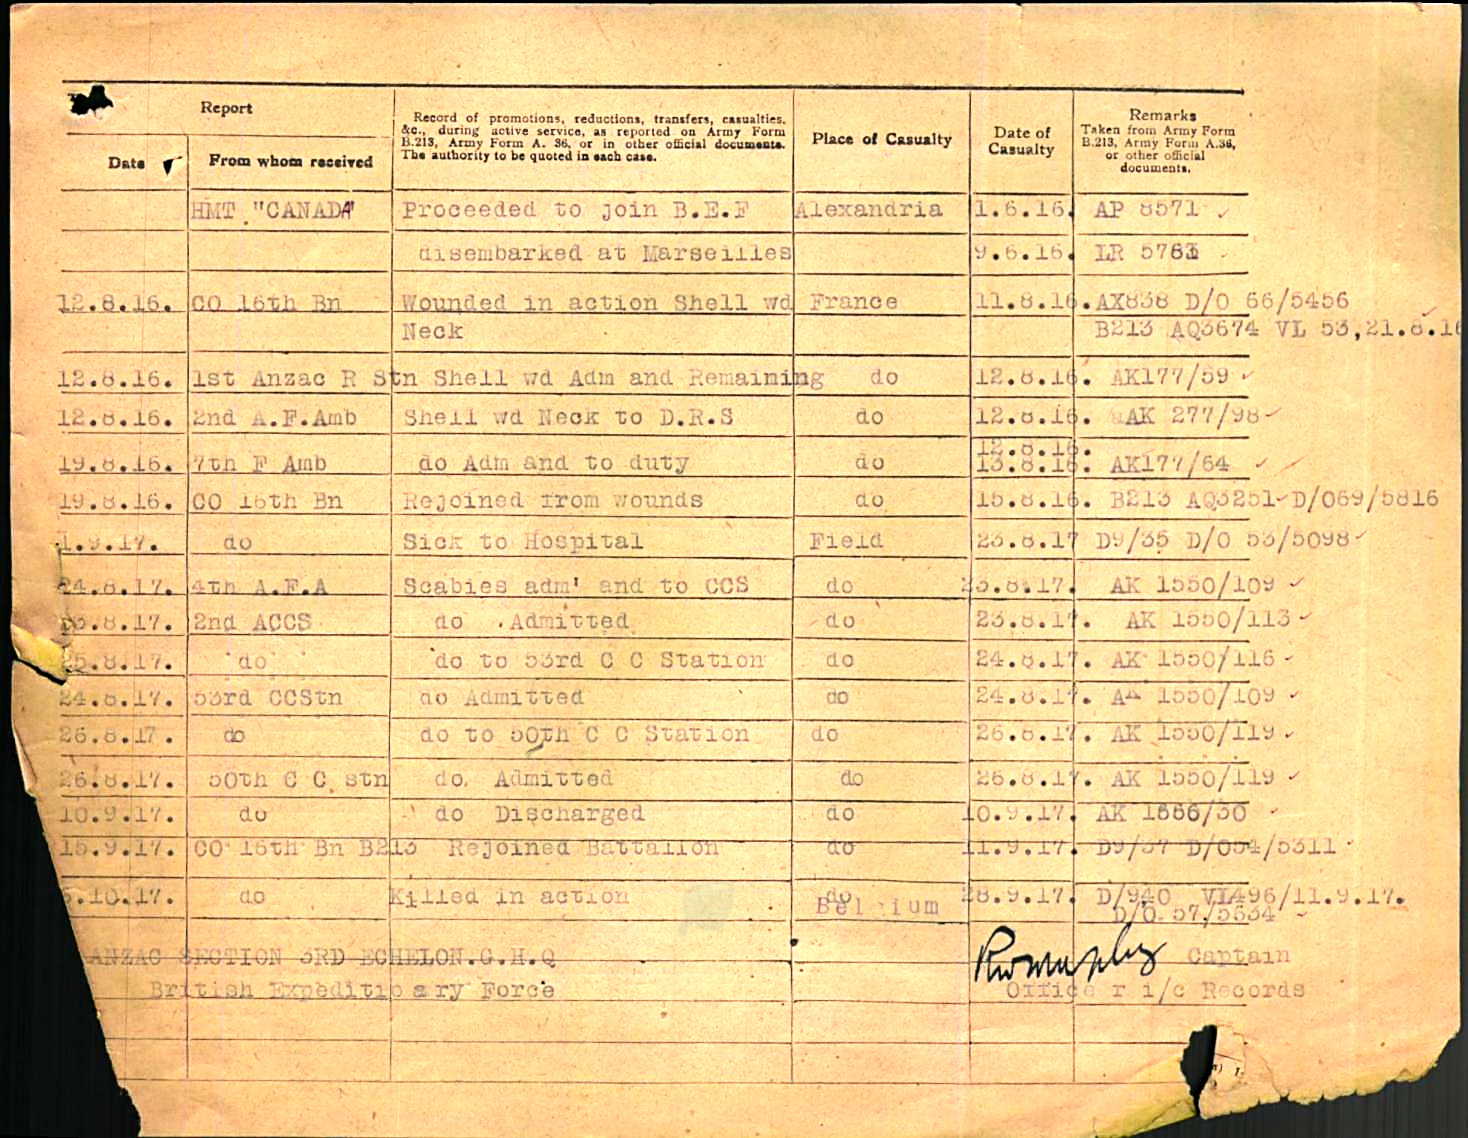 Report
Date
From whom received
Record of promotions, reductions, transfers, casualties,
&c., during active service, as reported on Army Form
B.213, Army Form A. 36, or in other official documents.
The authority to be quoted in each case.
Place of Casualty
Date of
Casualty
Remarks
Taken from Army Form
B.213, Army Form A.36,
or other official
documents.
HMT "CANADA" Proceeded to join B.E.F Alexandria 1.6.16. AP 8571
disembarked at Marseilles 9.6.16. LR 5763
12.8.16. CO 16th Bn Wounded in action Shell wd France 11.8.16. AX838 D/O 66/5456
Neck B213 AQ3674 VL 53,21.8.16
12.8.16. 1st Anzac R Stn Shell wd Adm and Remaining do 12.8.16. AK177/59
12.8.16. 2nd A.F.Amb Shell wd Neck to D.R.S do 12.8.16. AK 277/98
12.8.16.
19.8.16. 7th F Amb do Adm and to duty do 13.8.16. AK177/64
19.8.16. CO 16th Bn Rejoined from wounds do 15.8.16. B213 AQ3251 D/O69/5816
1.9.17. do Sick to Hospital Field 23.8.17 D9/35 D/O 53/5098
24.8.17. 4th A.F.A Scabies adm' and to CCS do 23.8.17. AK 1550/109
.8.17. 2nd ACCS do Admitted do 23.8.17. AK 1550/113
25.8.17. do do to 53rd C C Station do 24.8.17. AK 1550/116
24.8.17. 53rd CCStn do Admitted do 24.8.17. AK 1550/109
26.8.17. do do to 50th C C Station do 26.8.17. AK 1550/119
26.8.17. 50th C C stn do Admitted do 26.8.17. AK 1550/119
10.9.17. do do Discharged do 10.9.17. AK 1666/30
15.9.17. CO 16th Bn B213 Rejoined Battalion do 11.9.17. D9/37 D/O54/5311
.10.17. do Killed in action do 28.9.17. D/940 VL496/11.9.17.
Belgium D/O 57/5634
ANZAC SECTION 3RD ECHELON.G.H.Q Captain
British Expeditioary Force Officer i/c Records